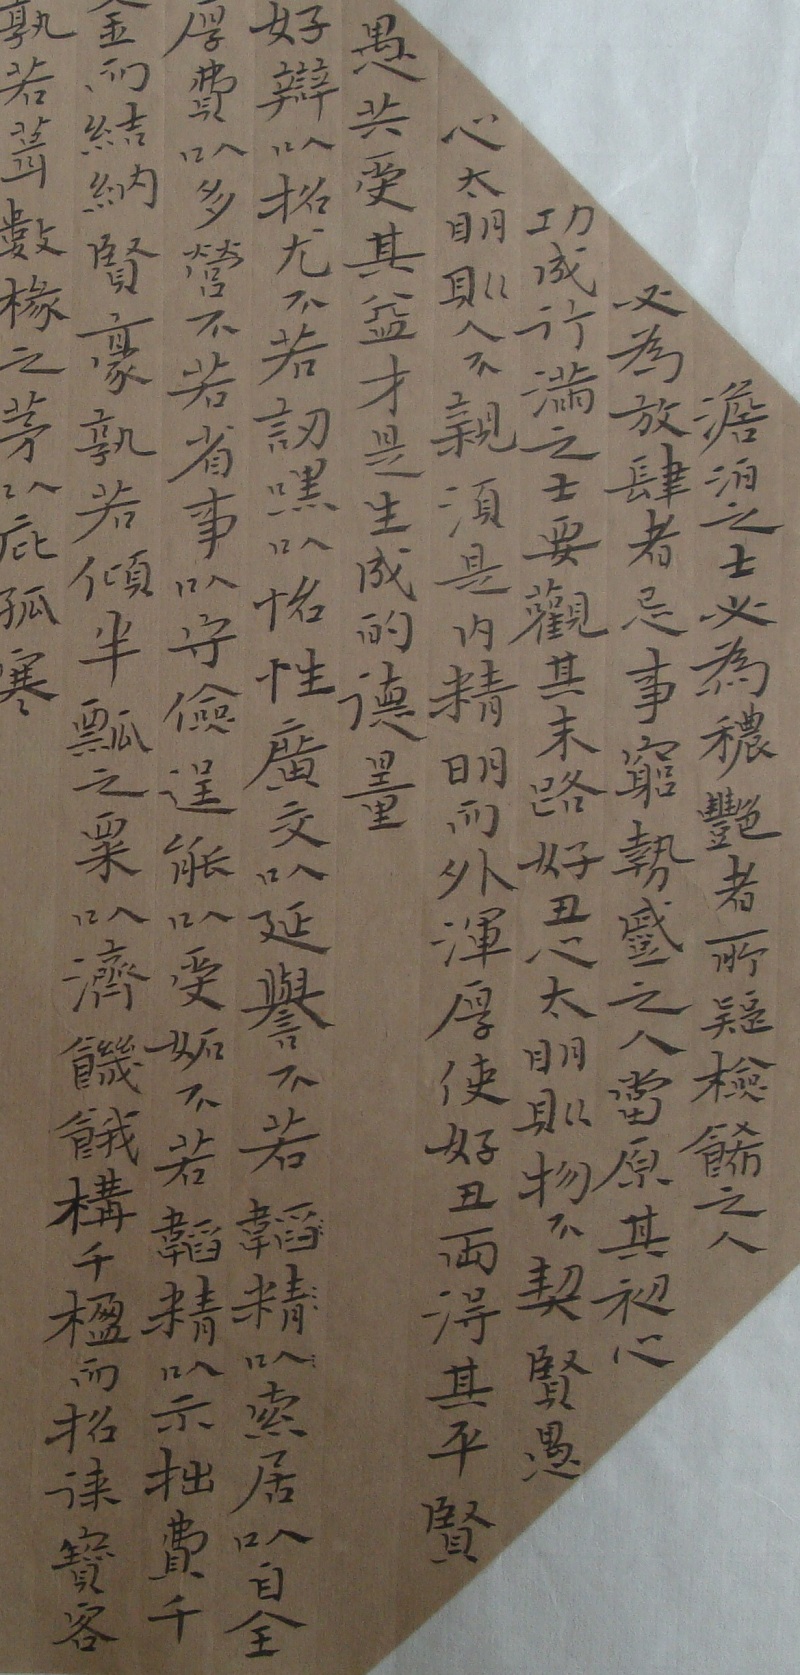 澹泊之士必為穠艷者所疑檢餙之人
必為放肆者忌事窮勢蹙之人當原其初心
功成行滿之士要觀其末路好丑心太明則物不契賢愚
心太明則人不親須是内精明而外渾厚使好丑兩得其平賢
愚共受其益才是生成的德量
好辯以招尤不若訒嘿以怡性廣交以延譽不若韜精以索居以自全
厚費以多營不若省事以守儉逞能以受妬不若韜精以示拙費千
金而結納賢豪孰若傾半瓢之粟以濟飢餓構千楹而招徠賓客
孰若葺數椽之茅以庇孤寒